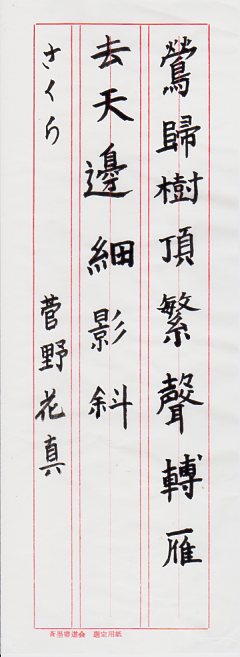 鶯歸樹頂繁聲轉雁
去天邊細影斜
さくら 菅野花真
選定用紙